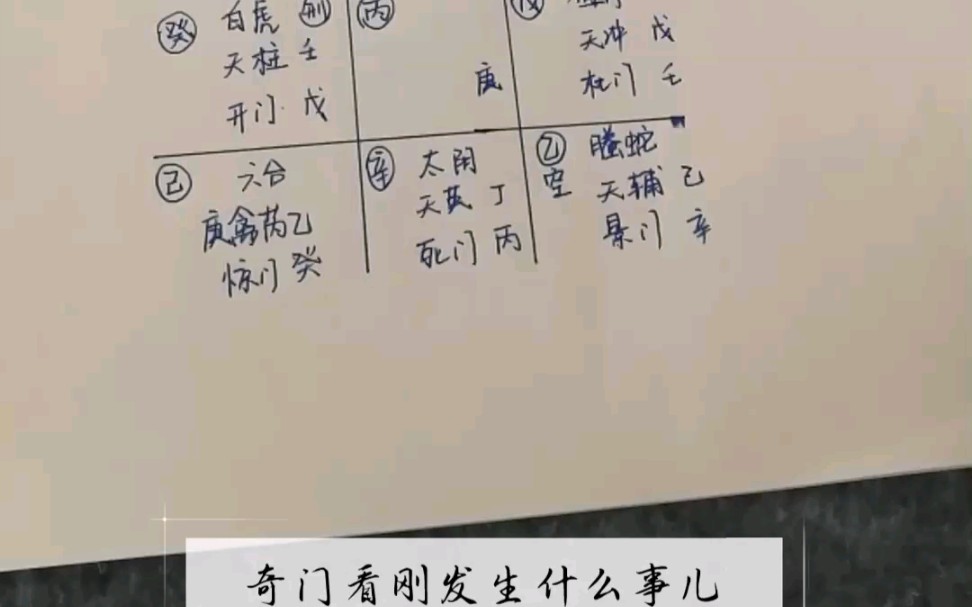 癸 白虎 刑
天柱 壬
开门 戊
丙
庚
戊
天冲 戊
杜门 壬
己 六合
庚禽芮乙
惊门 癸
辛 太阴
天英 丁
死门 丙
乙 螣蛇
空 天辅 己
景门 辛
奇门看刚发生什么事儿